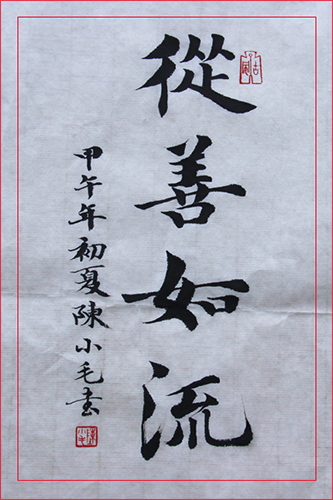 從善如流
甲午年初夏陳小毛書